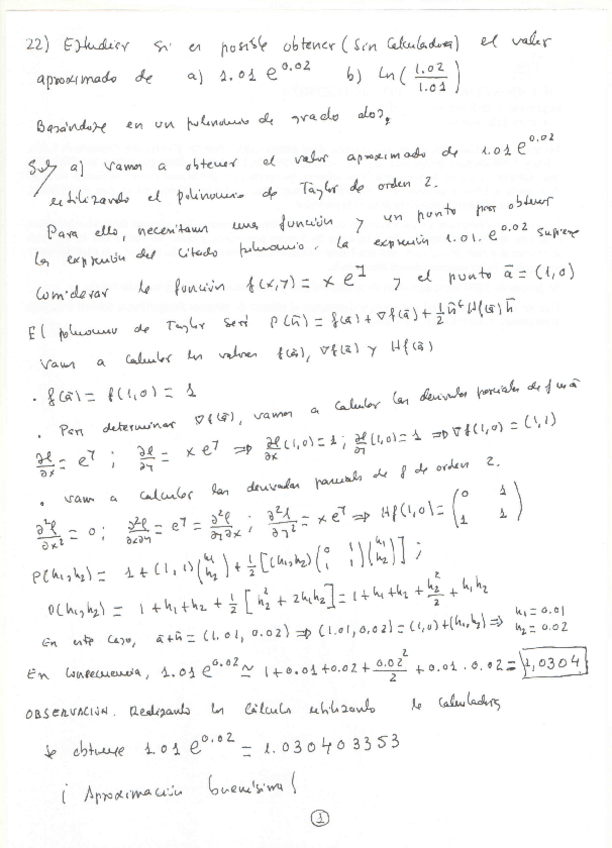 22) Estudiar si es posible obtener (sin calculadora) el valor
aproximado de a) 1.01 e^0.02 b) ln(1.02/1.01)
Basándose en un polinomio de grado dos.
Sol/ a) Vamos a obtener el valor aproximado de 1.01 e^0.02
utilizando el polinomio de Taylor de orden 2.
Para ello, necesitamos una función y un punto para obtener
la expresión del citado polinomio. La expresión 1.01. e^0.02 sugiere
considerar la función f(x,y) = x e^y y el punto ā = (1,0)
El polinomio de Taylor será P(h̄) = f(ā) + ∇f(ā) + 1/2 h̄^t Hf(ā) h̄
Vamos a calcular los valores f(ā), ∇f(ā) y Hf(ā)
· f(ā) = f(1,0) = 1
· Para determinar ∇f(ā), vamos a calcular las derivadas parciales de f en ā
∂f/∂x = e^y ; ∂f/∂y = x e^y ⇒ ∂f/∂x (1,0) = 1 ; ∂f/∂y (1,0) = 1 ⇒ ∇f(1,0) = (1,1)
· Vamos a calcular las derivadas parciales de f de orden 2.
∂²f/∂x² = 0 ; ∂²f/∂x∂y = e^y = ∂²f/∂y∂x ; ∂²f/∂y² = x e^y ⇒ Hf(1,0) = (0 1 / 1 1)
P(h₁,h₂) = 1 + (1,1)(h₁ / h₂) + 1/2 [(h₁,h₂)(0 1 / 1 1)(h₁ / h₂)] ;
P(h₁,h₂) = 1 + h₁ + h₂ + 1/2 [h₂² + 2h₁h₂] = 1 + h₁ + h₂ + h₂²/2 + h₁h₂
En este caso, ā + h̄ = (1.01, 0.02) ⇒ (1.01, 0.02) = (1,0) + (h₁,h₂) ⇒ h₁ = 0.01 h₂ = 0.02
En consecuencia, 1.01 e^0.02 ≃ 1 + 0.01 + 0.02 + 0.02²/2 + 0.01 · 0.02 = 1,0304
OBSERVACION. Realizando los cálculos utilizando la calculadora
se obtiene 1.01 e^0.02 = 1.030403353
¡ Aproximación buenísima !
1